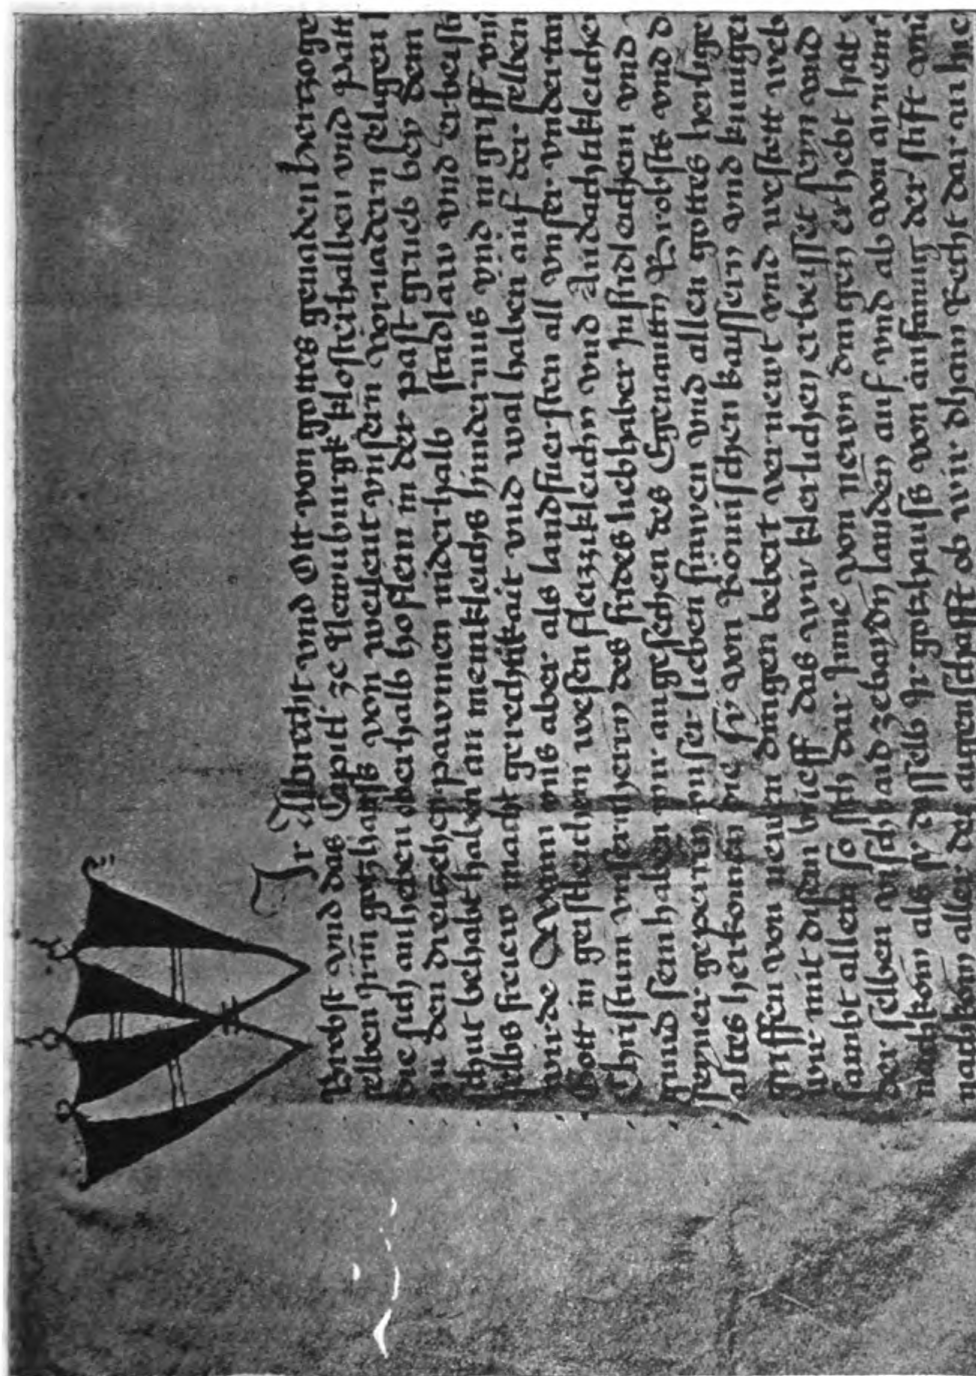 W Jr Albrecht vnd Ott von gottes genaden herczoge
Brobst vnd das Capitl ze Newnburgk klosterhalben vnd patt
selben Jrm gotzhauss von weylent vnsern voruadern seligen
die sich anheben oberhalb hoflen in der past grueb bey dem
zu den dreyzehen pawmen niderhalb stadlaw vnd erbeist
chut behabt haben an menikleichs hindernus vnd ingriff vn
selbs freiew macht gerechtikait vnd wal haben auf der selben
wirde Wann wns aber als landfuersten all vnser vndertan
Gott in geistleichem wesen fleizzikleichn vnd Andachtikleichn
Christum vnsern herrn des frides liebhaber fridleichen vnd
haben wir angesehen des Egenanttn Brobsts vnd d
seyner gepeirin vnser lieben frawen vnd allen gottes heilige
altes herkomen die sy von Romischen kayssern vnd kuniger
griffen von newen dingen bebert vernewt vnd vestett web
wie mit disen brieff das wir klerlichen erbeisset seyn vnd
sambt allem so sich dar Jnne von newn dingen erhebt hat
der selben visch waid ze baydn landen auf vnd ab von aynem
nachkom als sy desselb Jr gotzhauss von anfanng der stift vnd
nachkom aller der aygenschafft ob wir dhain Recht dar an hie